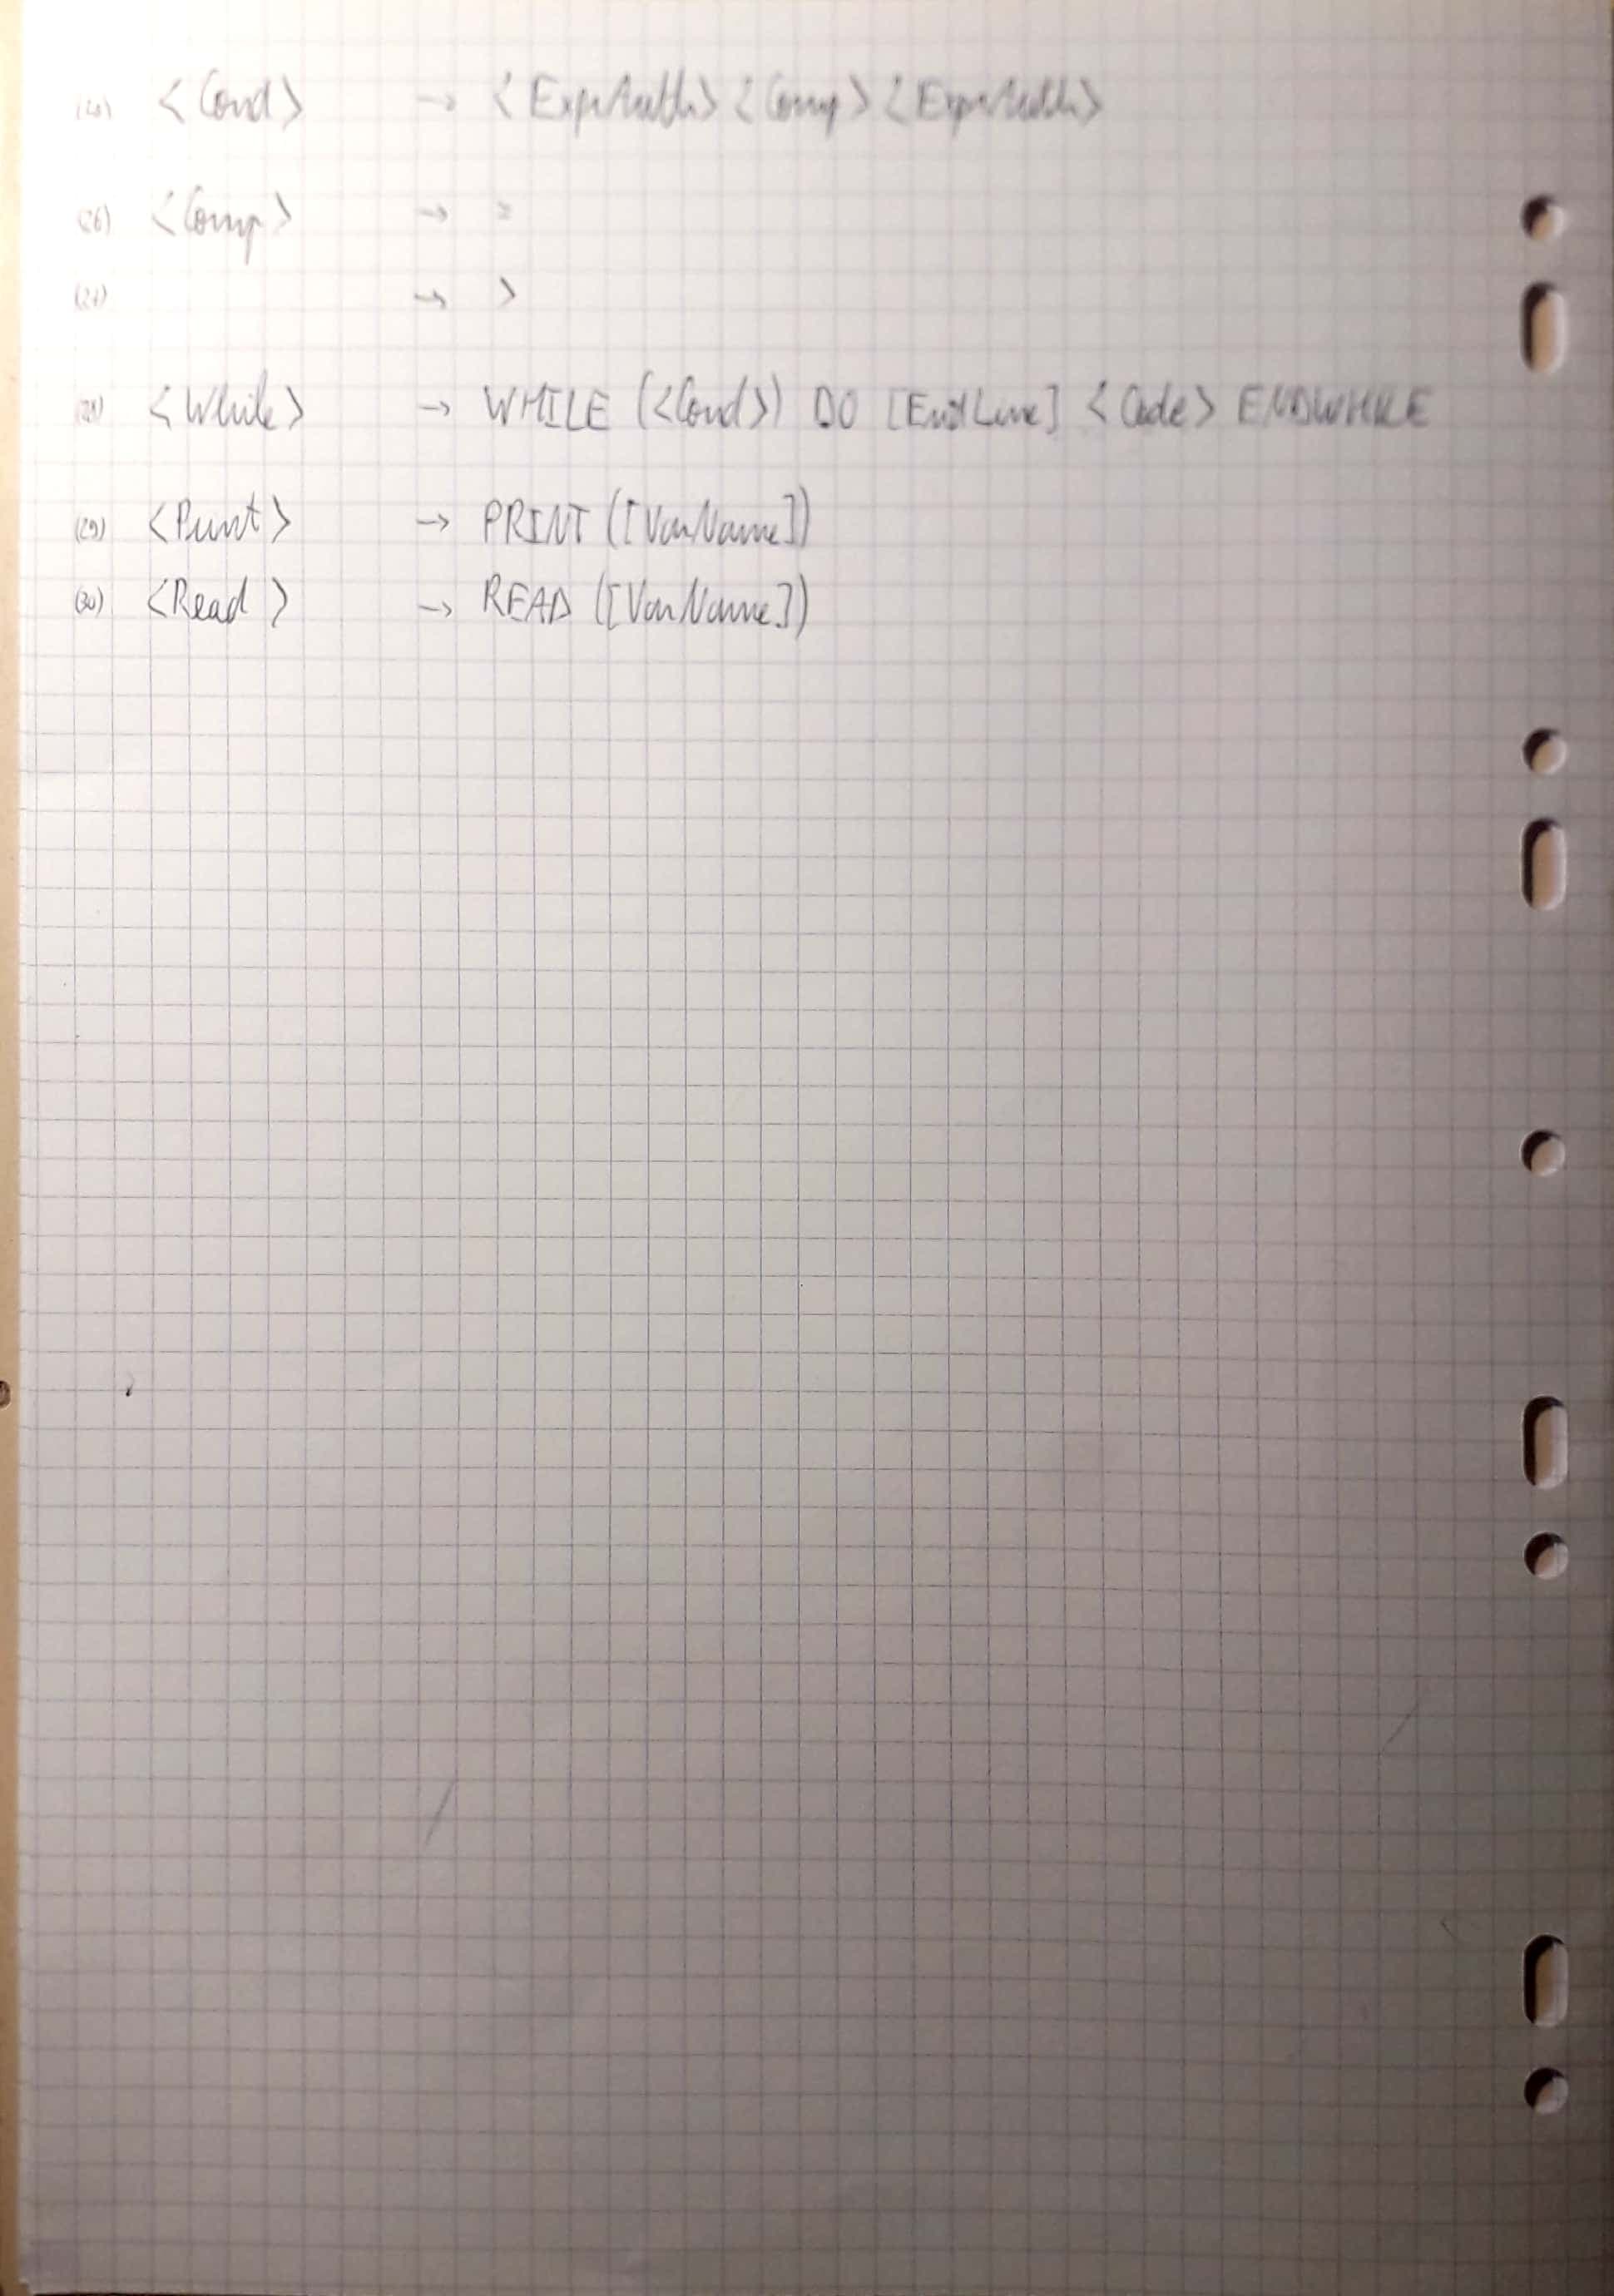 (25) <Cond> → <ExprArith> <Comp> <ExprArith>
(26) <Comp> → =
(27) → >
(28) <While> → WHILE (<Cond>) DO [EndLine] <Code> ENDWHILE
(29) <Print> → PRINT ([VarName])
(30) <Read> → READ ([VarName])